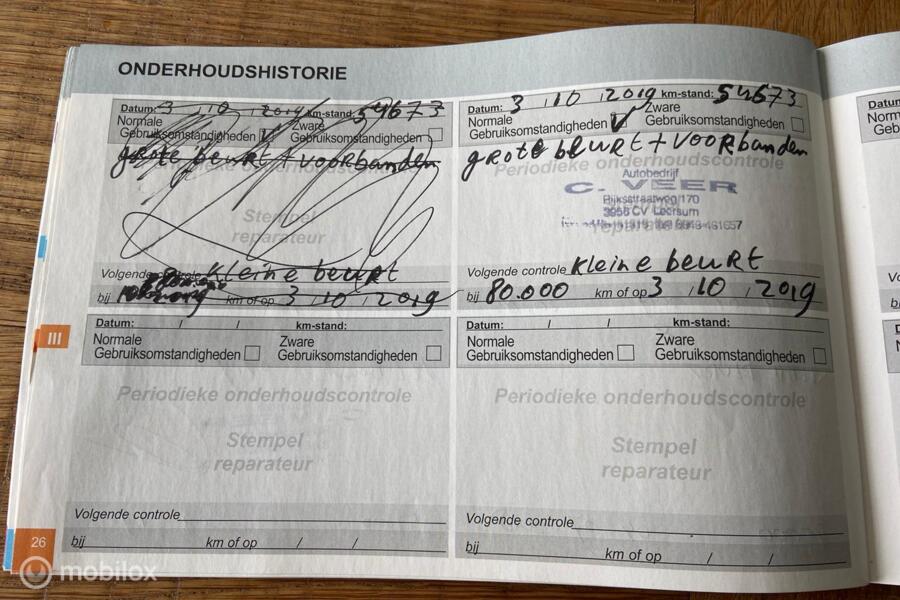 ONDERHOUDSHISTORIE
Datum: 3 / 10 / 2019 km-stand: 54673
Normale Gebruiksomstandigheden V Zware Gebruiksomstandigheden
grote beurt + voorbanden
Stempel
reparateur
Volgende controle kleine beurt
bij km of op 3 / 10 / 2019
Datum: 3 / 10 / 2019 km-stand: 54673
Normale Gebruiksomstandigheden V Zware Gebruiksomstandigheden
grote beurt + voorbanden
Periodieke onderhoudscontrole
Autobedrijf
C. VEER
Rijksstraatweg 170
3956 CV Leersum
Volgende controle kleine beurt
bij 80.000 km of op 3 / 10 / 2019
Datum: / / km-stand:
Normale Gebruiksomstandigheden Zware Gebruiksomstandigheden
Periodieke onderhoudscontrole
Stempel
reparateur
Volgende controle
bij km of op / /
Datum: / / km-stand:
Normale Gebruiksomstandigheden Zware Gebruiksomstandigheden
Periodieke onderhoudscontrole
Stempel
reparateur
Volgende controle
bij km of op / /
III
26
mobilox